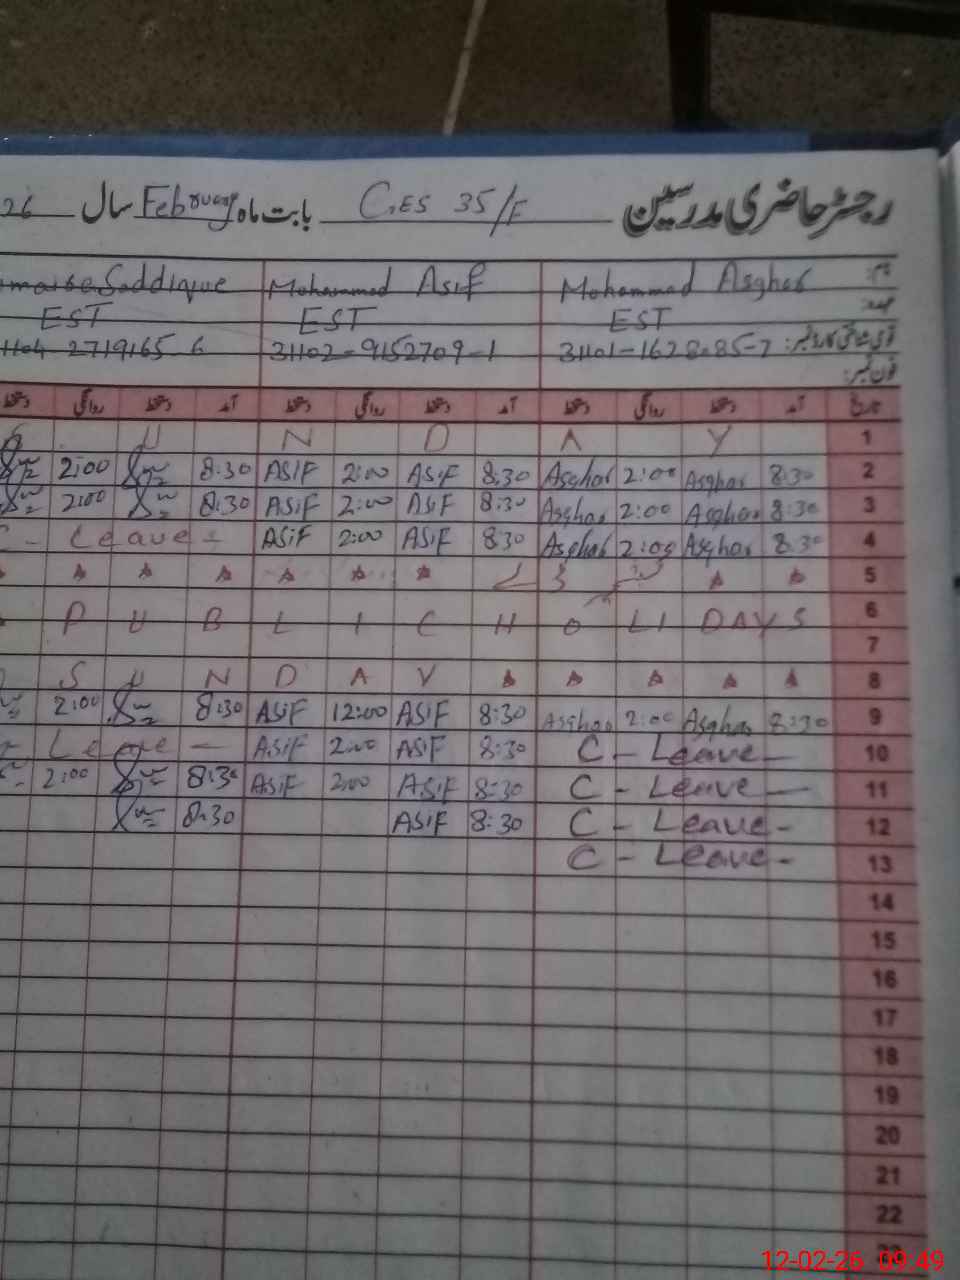 رجسٹر حاضری مدرسین GES 35/F بابت ماہ February سال 26
نام: Mohammad Asghar Mohammad Asif Saddique
عہدہ: EST EST EST
قومی شناختی کارڈ نمبر: 31102-9152709-1 2719165-6
فون نمبر:
تاریخ آمد دستخط روانگی دستخط آمد دستخط روانگی دستخط آمد دستخط روانگی دستخط
1 S U N D A Y
2 8:30 Asghar 2:00 Asghar 8:30 ASIF 2:00 ASIF 8:30 2:00
3 8:30 Asghar 2:00 Asghar 8:30 ASIF 2:00 ASIF 8:30 2:00
4 8:30 Asghar 2:00 Asghar 8:30 ASIF 2:00 ASIF C - Leave -
5
6 P U B L I C H O L I DAYS
7
8 S U N D A Y
9 8:30 Asghar 2:00 Asghar 8:30 ASIF 12:00 ASIF 8:30 2:00
10 C - Leave - 8:30 ASIF 2:00 ASIF Leave -
11 C - Leave - 8:30 ASIF 2:00 ASIF 8:30 2:00
12 C - Leave - 8:30 ASIF 8:30
13 C - Leave -
14
15
16
17
18
19
20
21
22
23
12-02-26 09:49